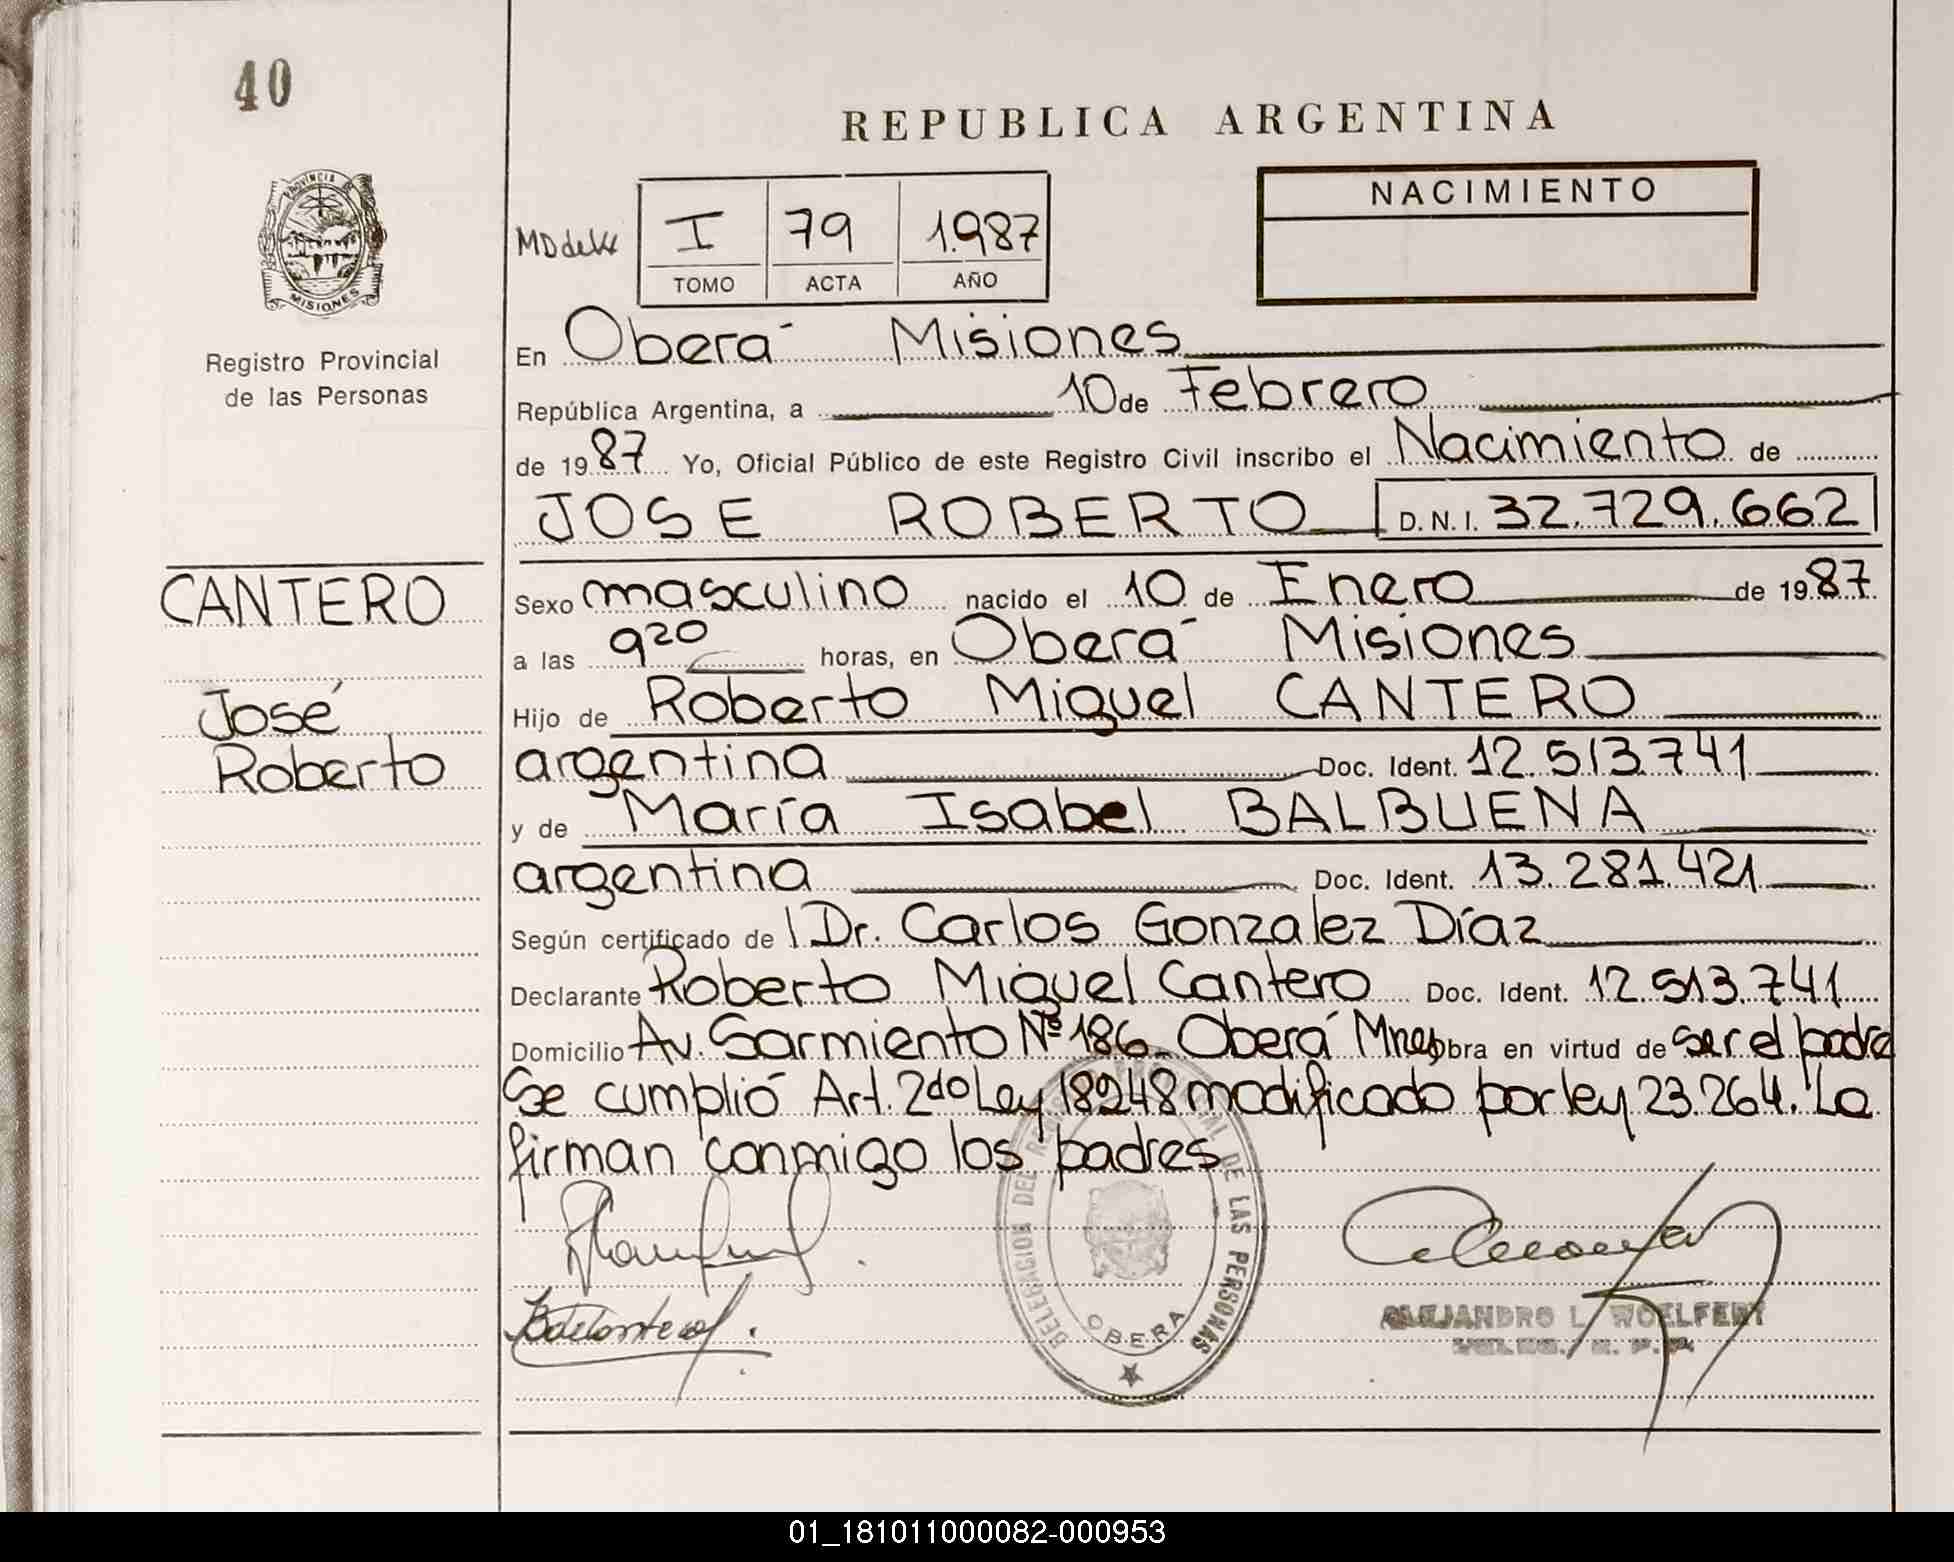 40
REPUBLICA ARGENTINA
PROVINCIA DE
MISIONES
Registro Provincial
de las Personas
I 79 1.987
TOMO ACTA AÑO
NACIMIENTO
En Oberá Misiones
República Argentina, a 10 de Febrero
de 1987 Yo, Oficial Público de este Registro Civil inscribo el Nacimiento de
JOSE ROBERTO D.N.I. 32.729.662
CANTERO
José
Roberto
Sexo masculino nacido el 10 de Enero de 1987
a las 9 20 horas, en Oberá Misiones
Hijo de Roberto Miguel CANTERO
argentina Doc. Ident. 12.513.741
y de María Isabel BALBUENA
argentina Doc. Ident. 13.281.421
Según certificado de Dr. Carlos Gonzalez Díaz
Declarante Roberto Miguel Cantero Doc. Ident. 12.513.741
Domicilio Av. Sarmiento Nº 186 - Oberá Mnes obra en virtud de ser el padre
Se cumplió Art. 2do Ley 18248 modificado por ley 23.264. La
firman conmigo los padres
DELEGACION DEL REGISTRO PROVINCIAL DE LAS PERSONAS
OBERA
ALEJANDRO L. WOELFERT
01_181011000082-000953